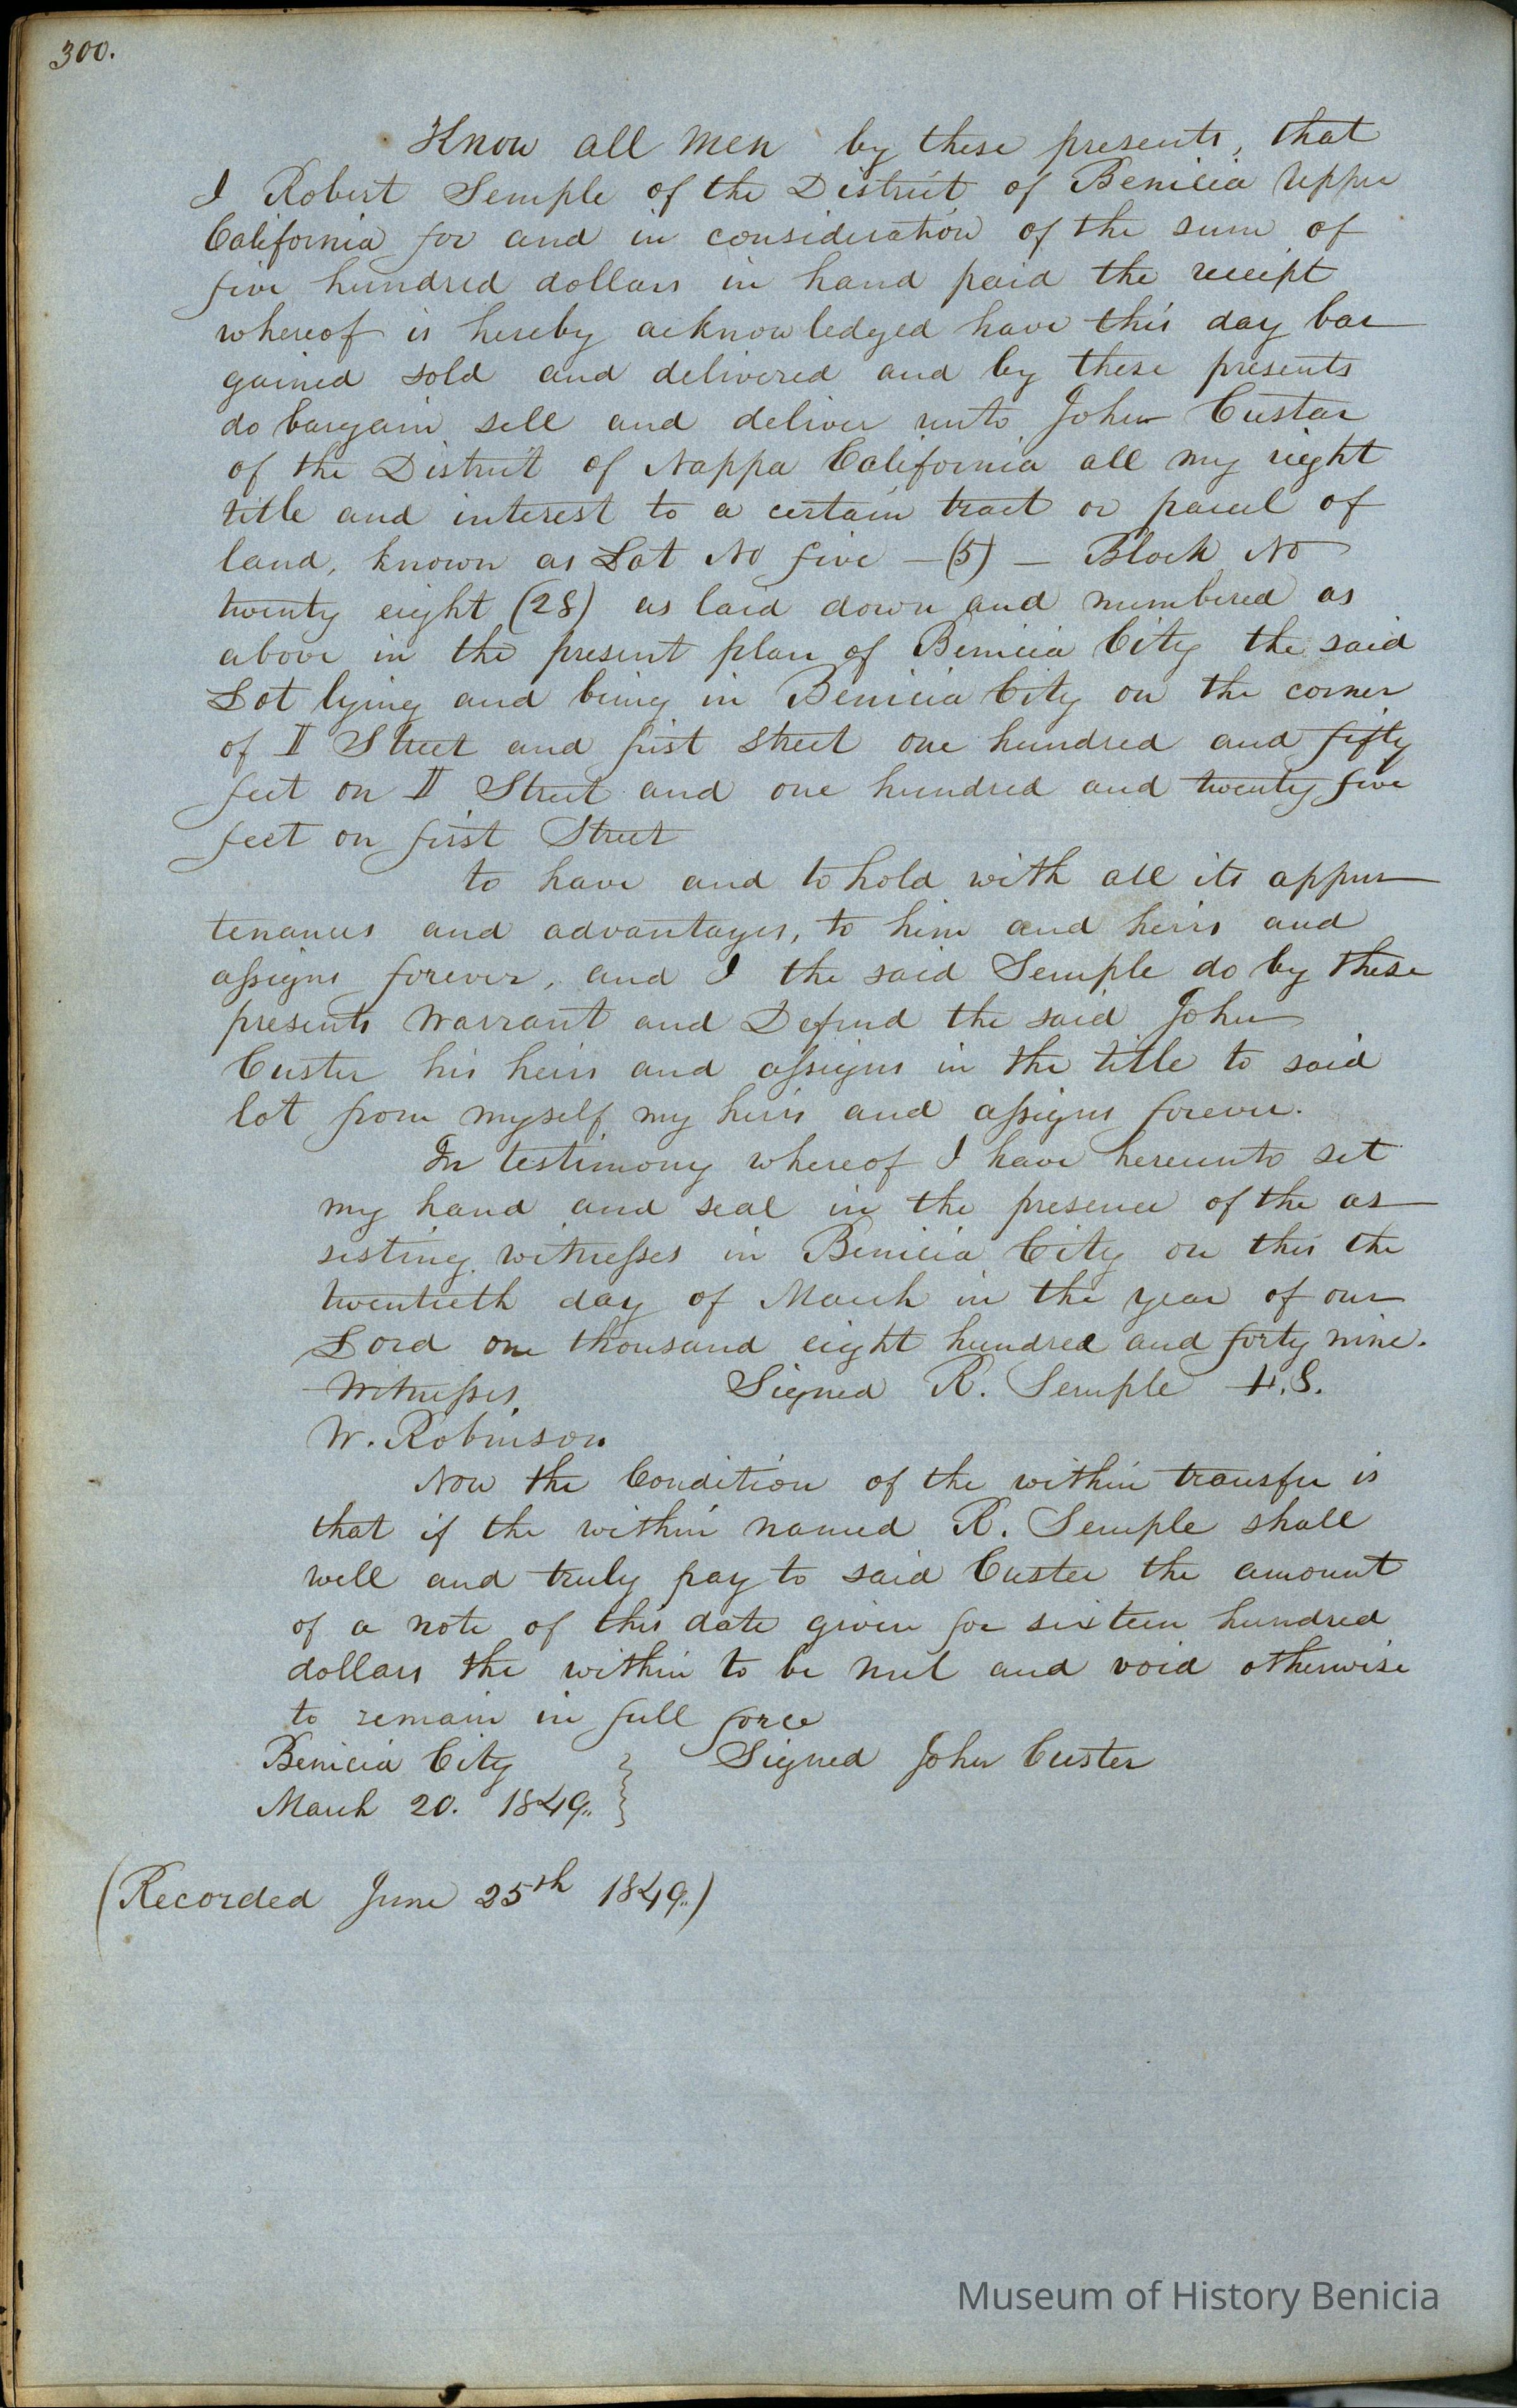 300.
Know all men by these presents, that
I Robert Semple of the District of Benicia Upper
California for and in consideration of the sum of
five hundred dollars in hand paid the receipt
whereof is hereby acknowledged have this day bar
gained sold and delivered and by these presents
do bargain sell and deliver unto John Custar
of the District of Nappa California all my right
title and interest to a certain tract or parcel of
land, known as Lot No five – (5) – Block No
twenty eight (28) as laid down and numbered as
above in the present plan of Benicia City the said
Lot lying and being in Benicia City on the corner
of II Street and first street one hundred and fifty
feet on II Street and one hundred and twenty five
feet on first Street
to have and to hold with all its appur
tenances and advantages, to him and heirs and
assigns forever, and I the said Semple do by these
presents Warrant and Defend the said John
Custer his heirs and assigns in the title to said
lot from myself my heirs and assigns forever.
In testimony whereof I have hereunto set
my hand and seal in the presence of the as
sisting witnesses in Benicia City on this the
twentieth day of March in the year of our
Lord one thousand eight hundred and forty nine.
Witnesses, Signed R. Semple L.S.
W. Robinson.
Now the Condition of the within transfer is
that if the within named R. Semple shall
well and truly pay to said Custer the amount
of a note of this date given for sixteen hundred
dollars the within to be nul and void otherwise
to remain in full force
Benicia City } Signed John Custer
March 20. 1849.
(Recorded June 25th 1849.)
Museum of History Benicia